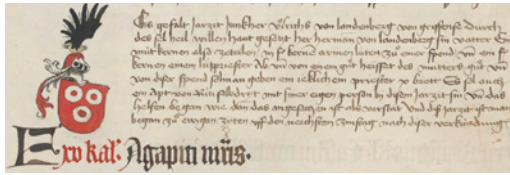 Es gefalt Jarzit Junkher Ulrichs von landenberg von griffense durch
des sel heil willen haut gesetzt her herman von landenberg sin vatter
müt kernen alß zetulen in f kernē armen luten zu einer spend vn ein f
kernen einem lutpriester Ab vn von einem gut heisset des mutters gut vn
von diser spend sol man geben ein ieklichem priester x brott Es sol auch
ein Apt von mit siner eigen person by disem Jarzit sin vn das
helfen began wie den das angesehen ist alß verstat Und diß jarzit ist man
began zu ewigen ziten uff den nechsten zinstag nach diser verkundung
E xv kal. Agapiti mris.